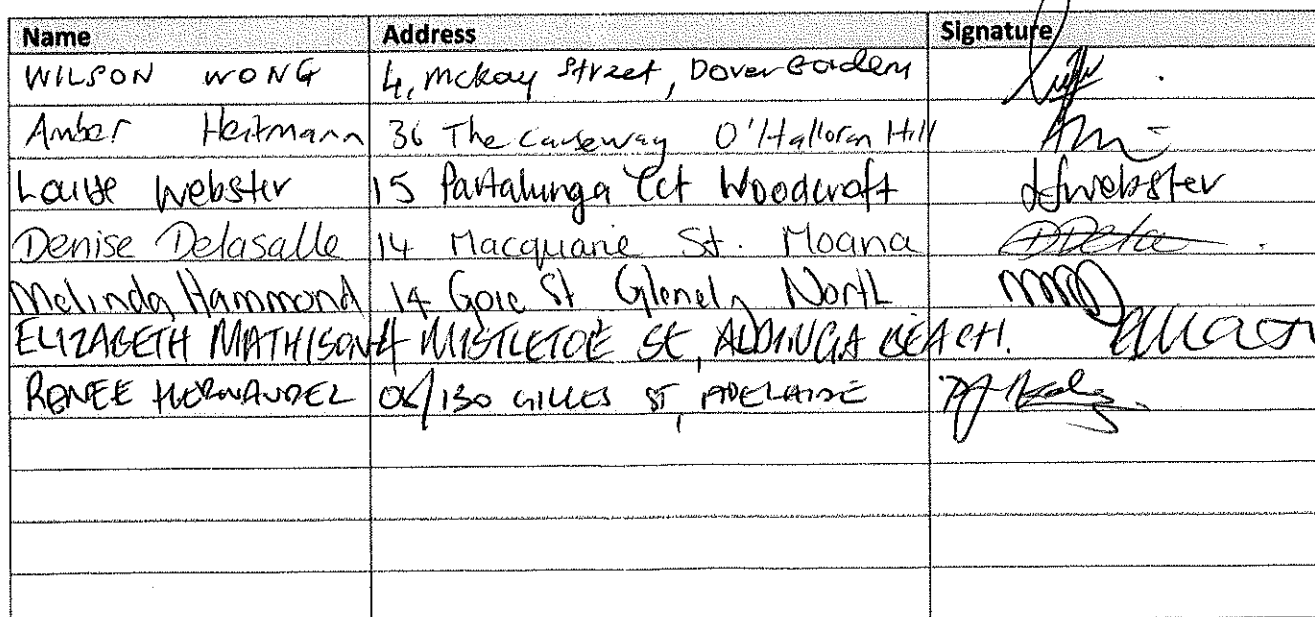 Name Address Signature
WILSON WONG 4, Mckay Street, Dover Gardens
Amber Heitmann 36 The Causeway O'Halloran Hill
Louise Webster 15 Partalunga Cct Woodcroft Webster
Denise Delasalle 14 Macquarie St. Moana
Melinda Hammond 14 St Glenelg North
ELIZABETH MATHISON 4 MISTLETOE St, ALDINGA BEACH.
RENEE 130 GILLES ST, ADELAIDE